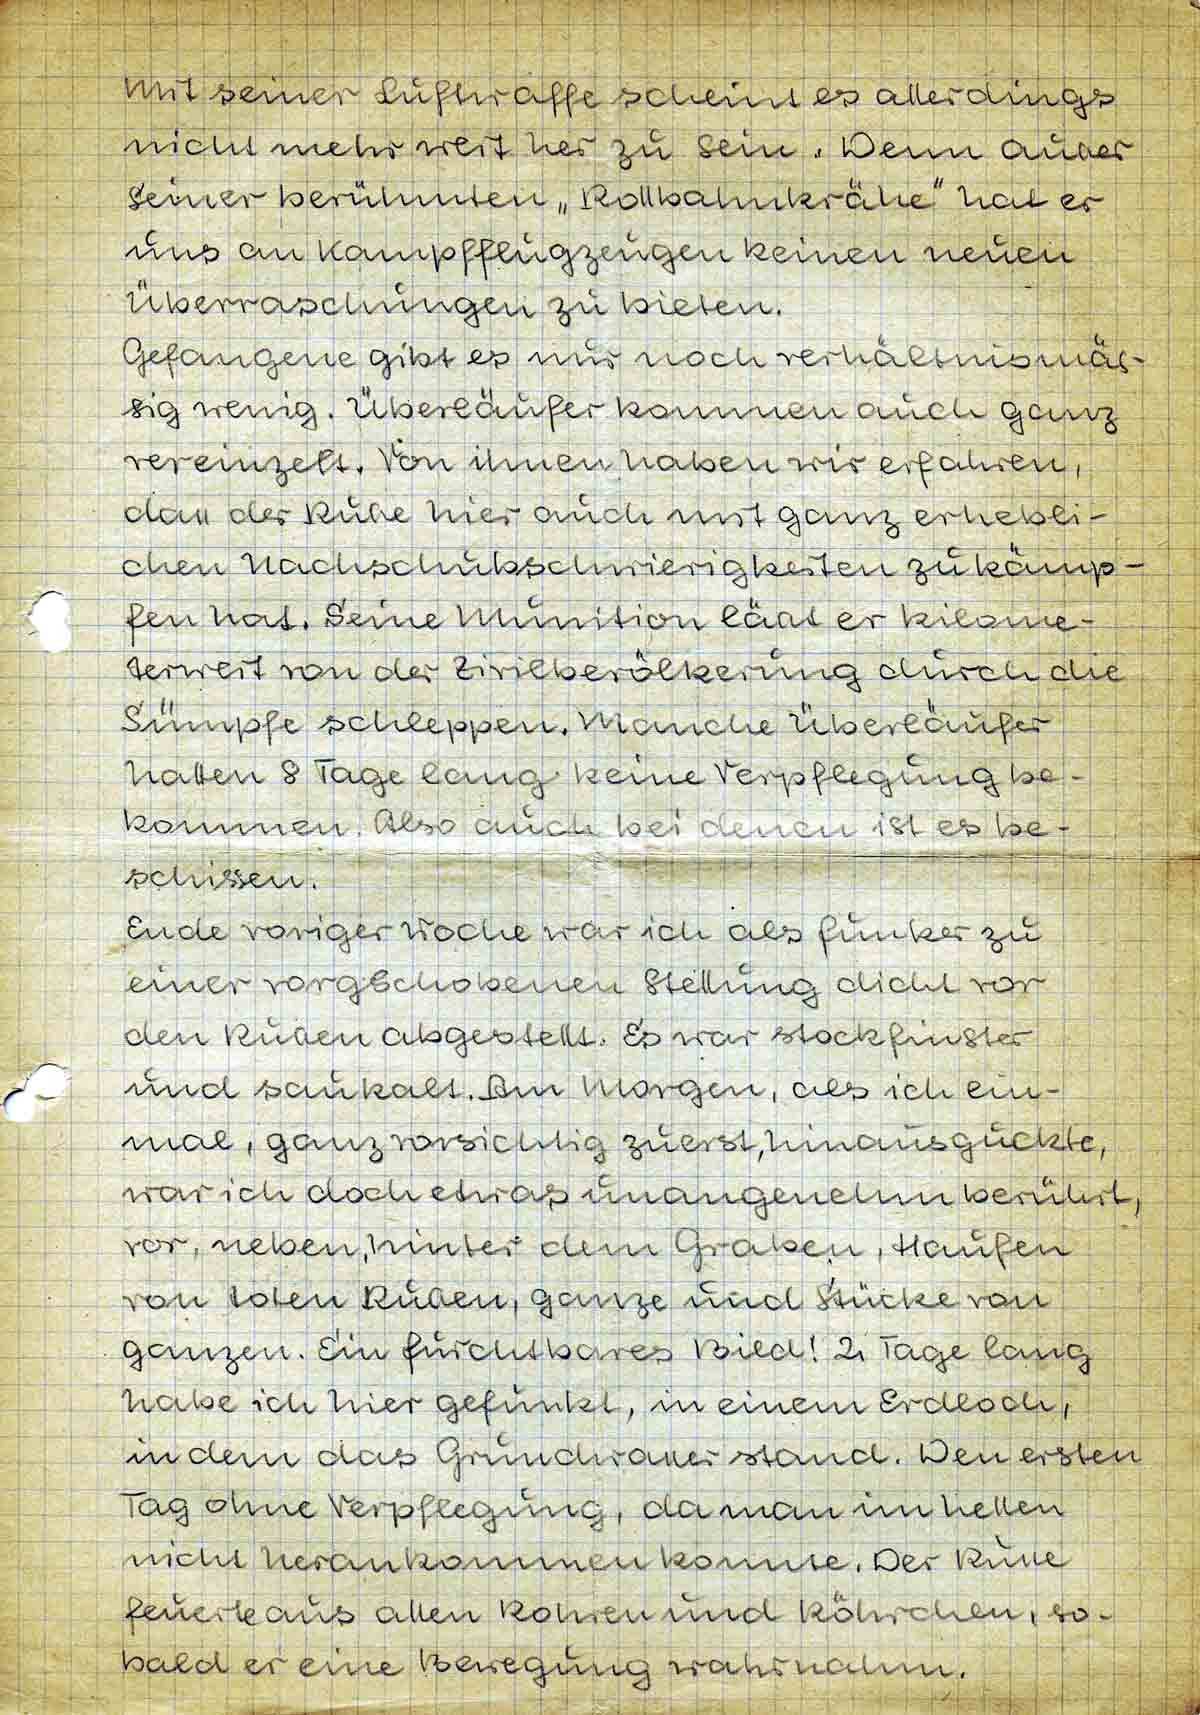 Mit seiner Luftwaffe scheint es allerdings
nicht mehr weit her zu sein. Denn außer
seiner berühmten „Rollbahnkrähe“ hat er
uns an Kampfflugzeugen keinen neuen
Überraschungen zu bieten.
Gefangene gibt es nur noch verhältnismäs-
sig wenig. Überläufer kommen auch ganz
vereinzelt. Von ihnen haben wir erfahren,
daß der Ruße hier auch mit ganz erhebli-
chen Nachschubschwierigkeiten zu kämp-
fen hat. Seine Munition läßt er kilome-
terweit von der Zivilbevölkerung durch die
Sümpfe schleppen. Manche Überläufer
hatten 8 Tage lang keine Verpflegung be-
kommen. Also auch bei denen ist es be-
schissen.
Ende voriger Woche war ich als Funker zu
einer vorgschobenen Stellung dicht vor
den Rußen abgestellt. Es war stockfinster
und saukalt. Am Morgen, als ich ein-
mal, ganz vorsichtig zuerst, hinausguckte,
war ich doch etwas unangenehm berührt,
vor, neben, hinter dem Graben, Haufen
von toten Rußen, ganze und Stücke von
ganzen. Ein furchtbares Bild! 2 Tage lang
habe ich hier gefunkt, in einem Erdloch,
in dem das Grundwaßer stand. Den ersten
Tag ohne Verpflegung, da man im hellen
nicht herankommen konnte. Der Ruße
feuerte aus allen Rohren und Röhrchen, so-
bald er eine Bewegung wahrnahm.